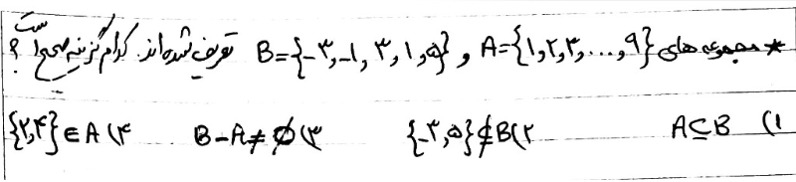 * مجموعه های A={۱,۲,۳,...,۹} و B={-۳,-۱,۳,۱,۵} تعریف شده اند. کدام گزینه صحیح است ؟
۱) A⊆B ۲) {-۳,۵}⊄B ۳) B-A≠∅ ۴) {۲,۴}∈A